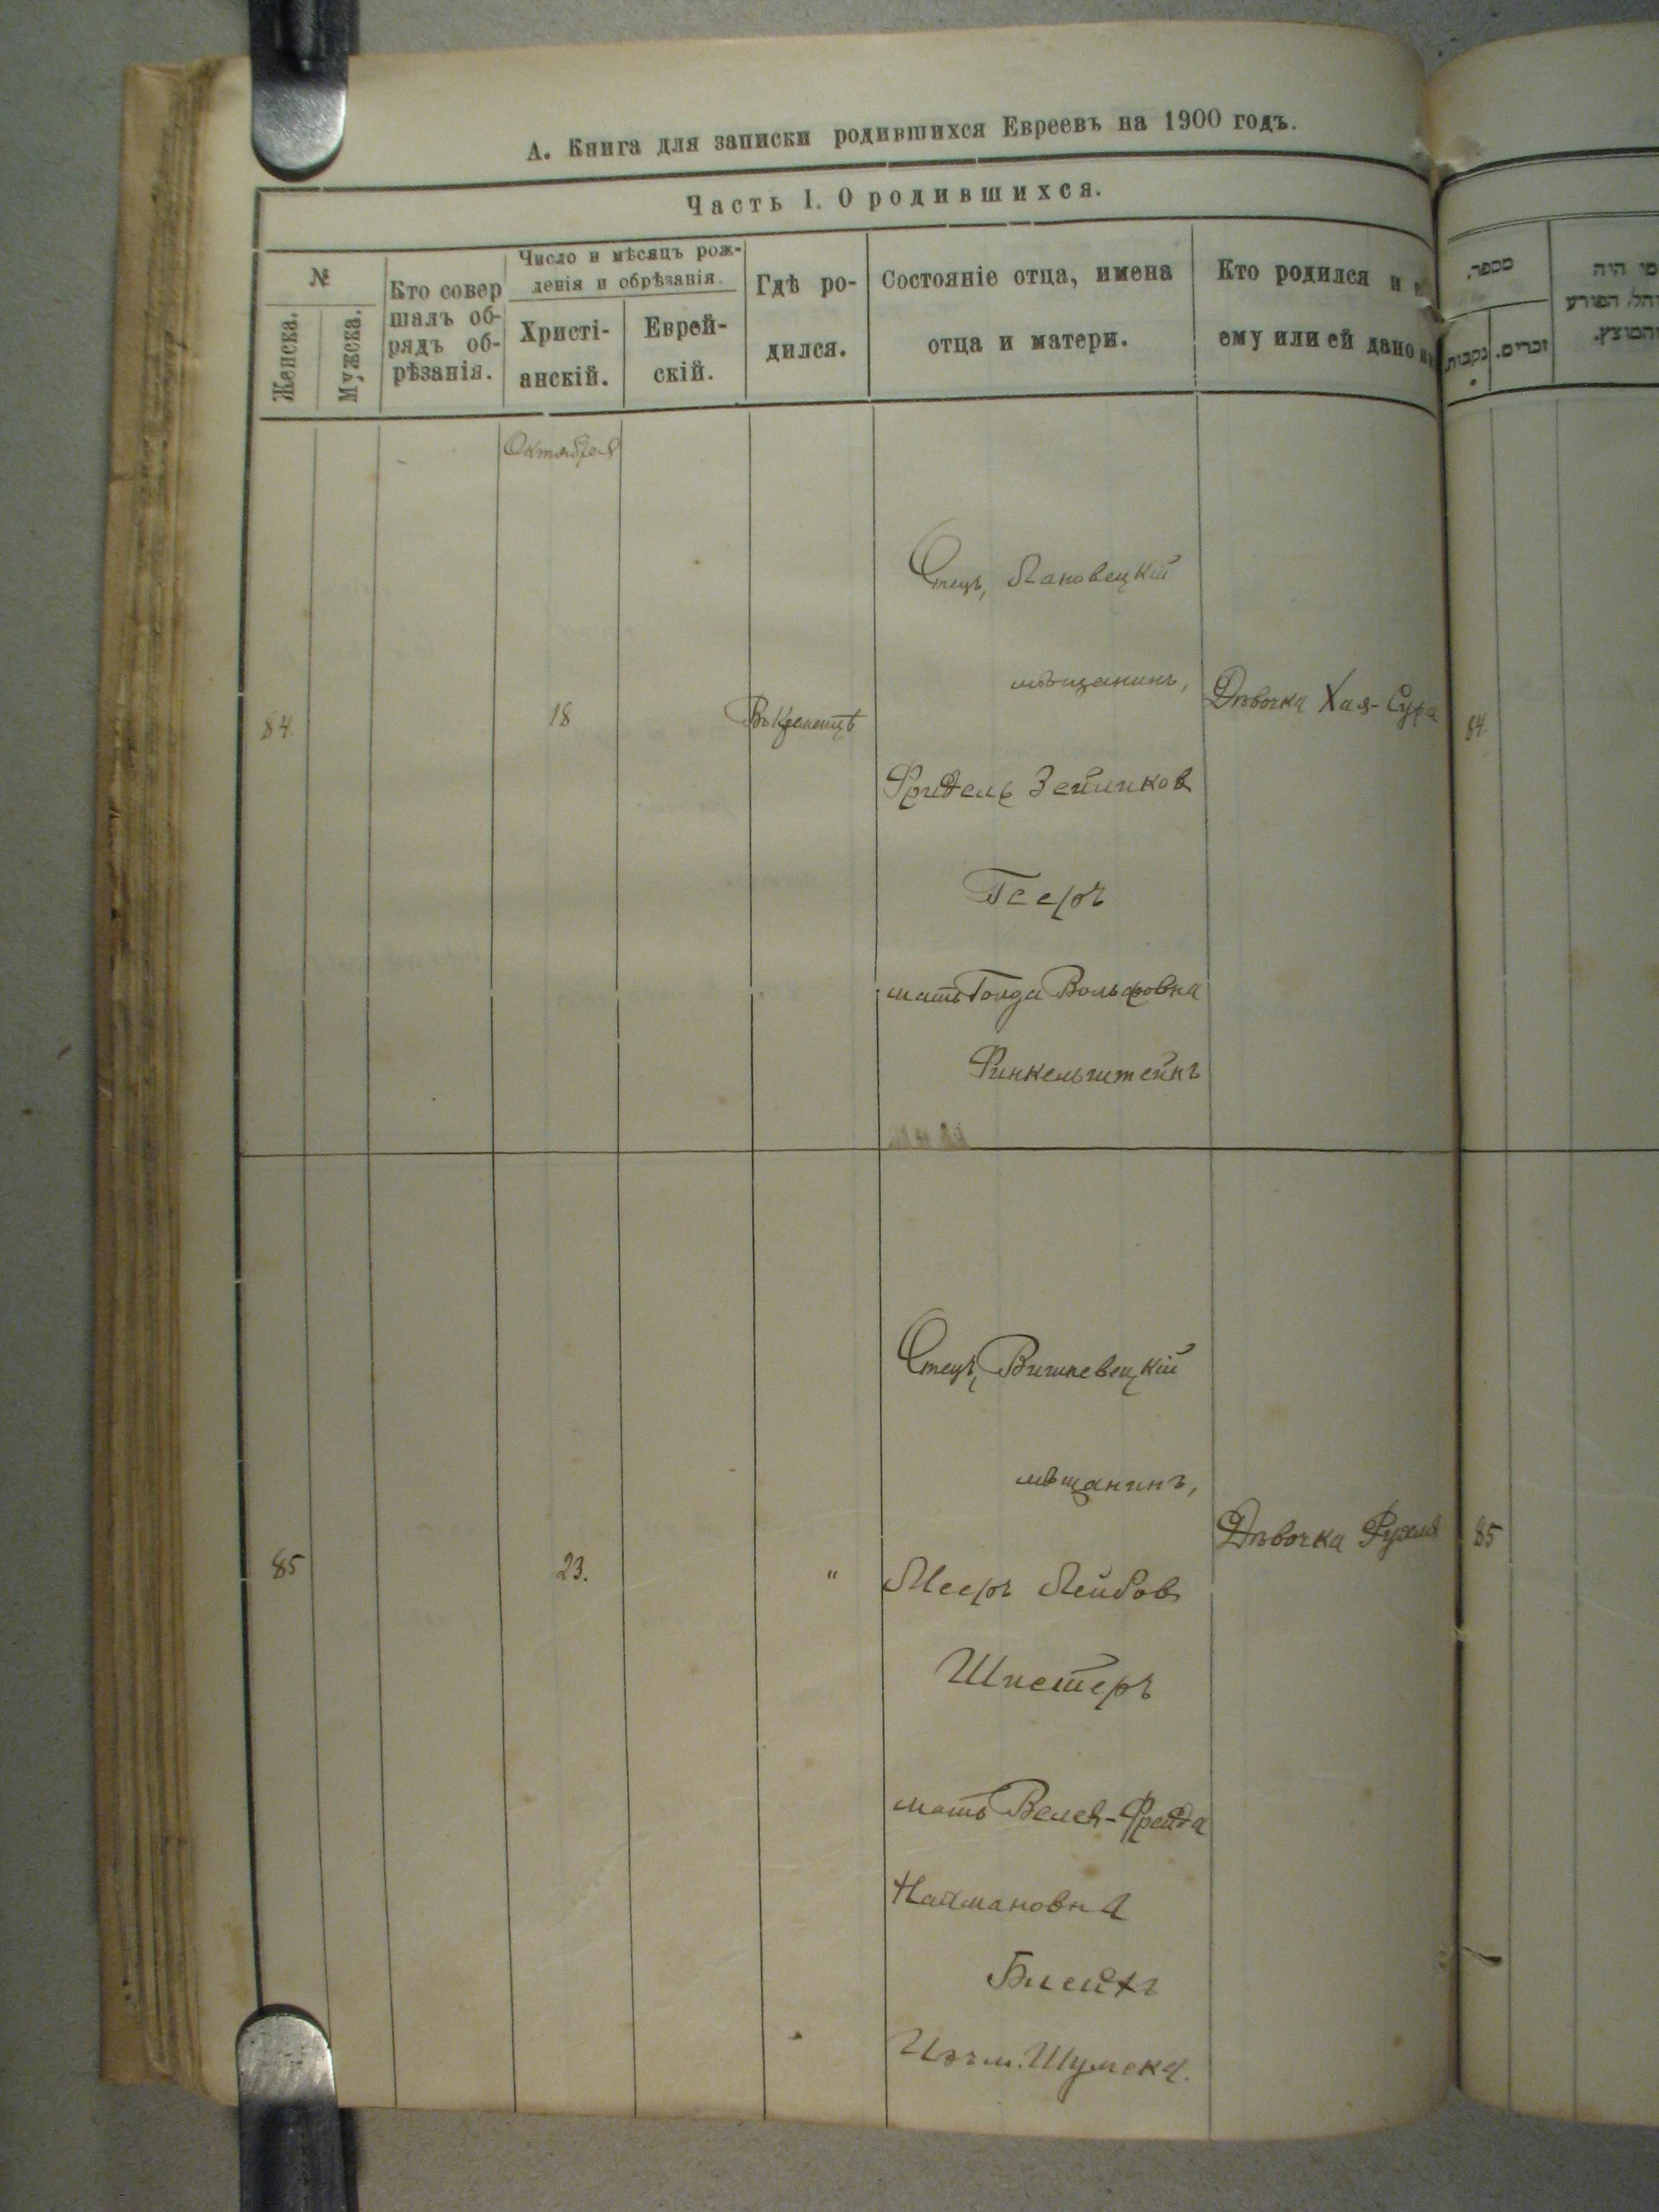 А. Книга для записки родившихся Евреевъ на 1900 годъ.
Часть I. О родившихся.
№
Женска.
Мужска.
Кто совер
шалъ об-
рядъ об-
рѣзанія.
Число и мѣсяцъ рож-
денія и обрѣзанія.
Христі-
анскій.
Еврей-
скій.
Гдѣ ро-
дился.
Состояніе отца, имена
отца и матери.
Кто родился и
ему или ей дано
Октября
84.
18
Въ Кременцѣ
Отецъ, Лановецкій
мѣщанинъ,
Фридель Зейликов
Гееръ
мать Голда Вольфовна
Финкельштейнъ
Дѣвочка Хая-Сура
85
23.
"
Отецъ, Вишневецкій
мѣщанинъ,
Мееръ Лейбов
мать Фрейда
Нахмановна
Изъ м. Шумска.
Дѣвочка
מספר.
נקבות.
זכרים.
מי היה
המוהל. הפורע
והמוצץ.
84.
85